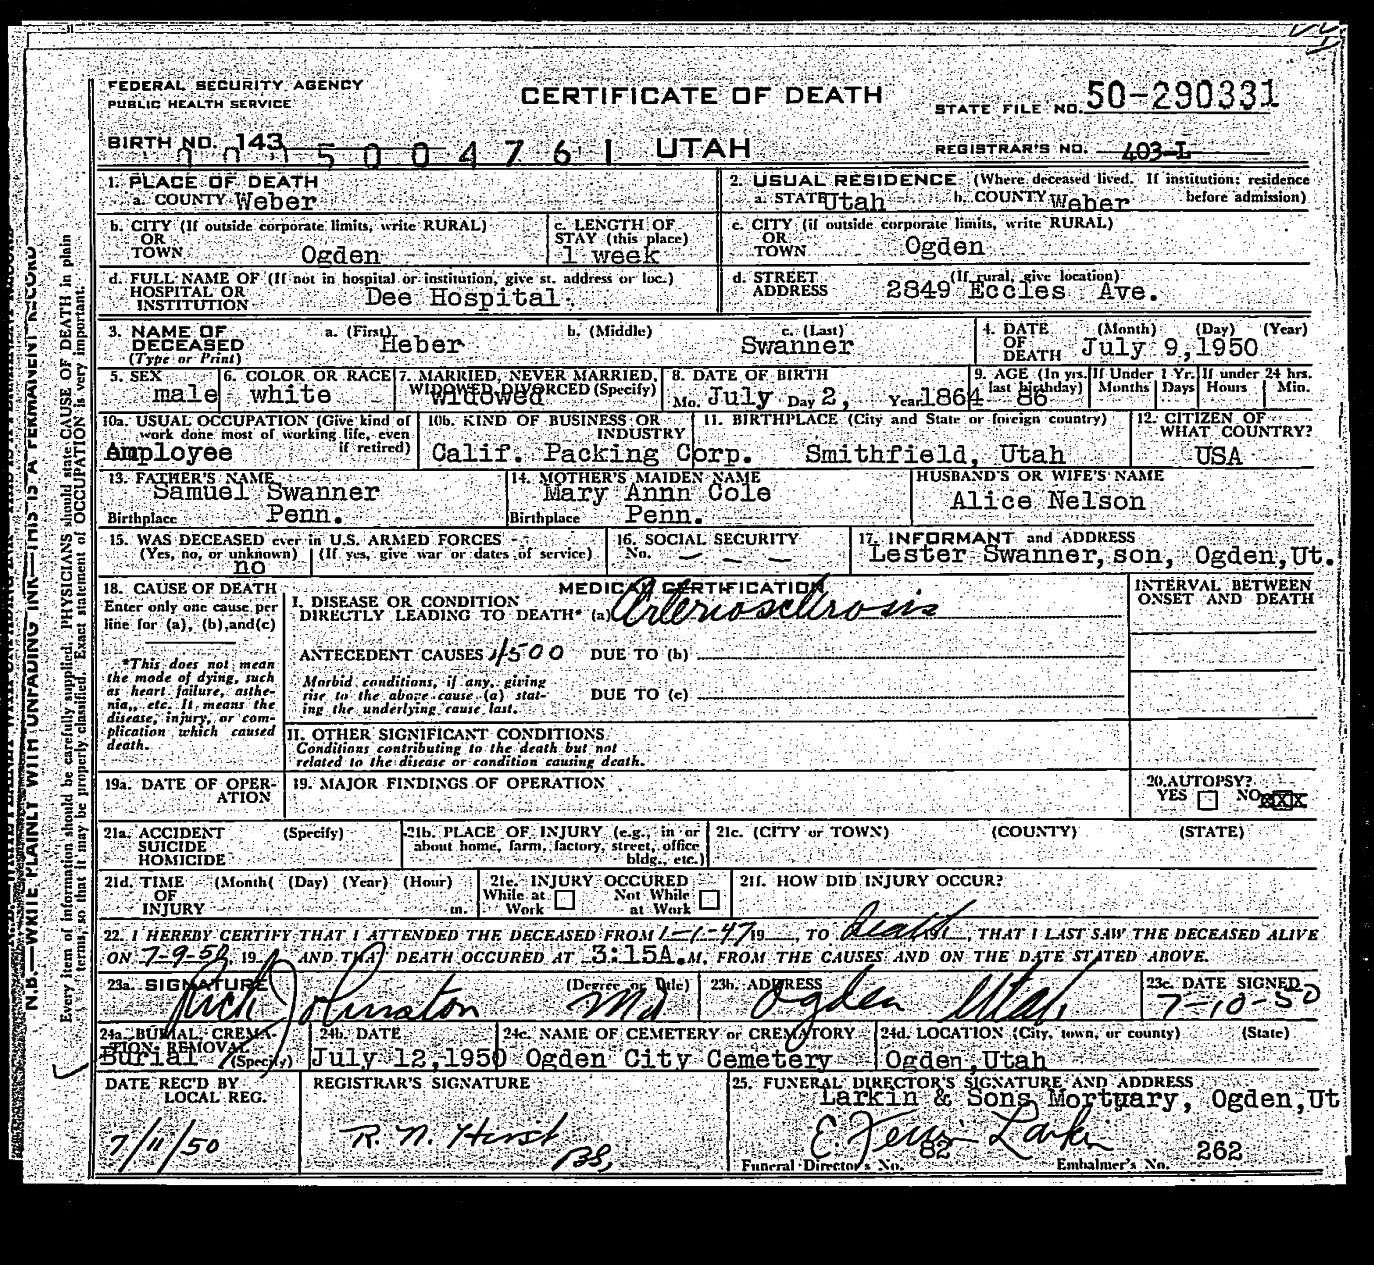 FEDERAL SECURITY AGENCY
PUBLIC HEALTH SERVICE
CERTIFICATE OF DEATH
STATE FILE NO. 50-290331
BIRTH NO. 143
5004761 UTAH
REGISTRAR'S NO. 403-L
1. PLACE OF DEATH
a. COUNTY Weber
2. USUAL RESIDENCE (Where deceased lived. If institution: residence before admission)
a. STATE Utah b. COUNTY Weber
b. CITY (If outside corporate limits, write RURAL)
OR
TOWN Ogden
c. LENGTH OF
STAY (this place)
1 week
c. CITY (if outside corporate limits, write RURAL)
OR
TOWN Ogden
d. FULL NAME OF (If not in hospital or institution, give st. address or loc.)
HOSPITAL OR
INSTITUTION Dee Hospital.
d. STREET (If rural, give location)
ADDRESS 2849 Eccles Ave.
3. NAME OF a. (First) b. (Middle) c. (Last)
DECEASED Heber Swanner
(Type or Print)
4. DATE (Month) (Day) (Year)
OF
DEATH July 9, 1950
5. SEX
male
6. COLOR OR RACE
white
7. MARRIED, NEVER MARRIED,
WIDOWED DIVORCED (Specify)
widowed
8. DATE OF BIRTH
Mo. July Day 2, Year 1864
9. AGE (In yrs.
last birthday)
86
If Under 1 Yr.
Months Days
If under 24 hrs.
Hours Min.
10a. USUAL OCCUPATION (Give kind of
work done most of working life, even
if retired)
Employee
10b. KIND OF BUSINESS OR
INDUSTRY
Calif. Packing Corp.
11. BIRTHPLACE (City and State or foreign country)
Smithfield, Utah
12. CITIZEN OF
WHAT COUNTRY?
USA
13. FATHER'S NAME
Samuel Swanner
Birthplace Penn.
14. MOTHER'S MAIDEN NAME
Mary Annn Cole
Birthplace Penn.
HUSBAND'S OR WIFE'S NAME
Alice Nelson
15. WAS DECEASED ever in U.S. ARMED FORCES
(Yes, no, or unknown) (If yes, give war or dates of service)
no
16. SOCIAL SECURITY
No. — — —
17. INFORMANT and ADDRESS
Lester Swanner, son, Ogden, Ut.
18. CAUSE OF DEATH
Enter only one cause per
line for (a), (b), and (c)
*This does not mean
the mode of dying, such
as heart failure, asthe-
nia,, etc. It means the
disease, injury, or com-
plication which caused
death.
MEDICAL CERTIFICATION
I. DISEASE OR CONDITION
DIRECTLY LEADING TO DEATH* (a) Arteriosclerosis
ANTECEDENT CAUSES DUE TO (b)
Morbid conditions, if any, giving
rise to the above cause (a) stat-
ing the underlying cause last.
DUE TO (c)
II. OTHER SIGNIFICANT CONDITIONS
Conditions contributing to the death but not
related to the disease or condition causing death.
INTERVAL BETWEEN
ONSET AND DEATH
19a. DATE OF OPER-
ATION
19. MAJOR FINDINGS OF OPERATION
20. AUTOPSY?
YES NO XXX
21a. ACCIDENT (Specify)
SUICIDE
HOMICIDE
21b. PLACE OF INJURY (e.g., in or
about home, farm, factory, street, office
bldg., etc.)
21c. (CITY or TOWN) (COUNTY) (STATE)
21d. TIME (Month( (Day) (Year) (Hour)
OF
INJURY m.
21e. INJURY OCCURED
While at Not While
Work at Work
21f. HOW DID INJURY OCCUR?
22. I HEREBY CERTIFY THAT I ATTENDED THE DECEASED FROM 1-1-47 19__, TO Death, 19__, THAT I LAST SAW THE DECEASED ALIVE
ON 7-9-50, 19__ AND THAT DEATH OCCURED AT 3:15A.M. FROM THE CAUSES AND ON THE DATE STATED ABOVE.
23a. SIGNATURE (Degree or Title)
Johnston MD
23b. ADDRESS
Ogden Utah
23c. DATE SIGNED
7-10-50
24a. BURIAL, CREMA-
TION REMOVAL
Burial (Specify)
24b. DATE
July 12, 1950
24c. NAME OF CEMETERY or CREMATORY
Ogden City Cemetery
24d. LOCATION (City, town, or county) (State)
Ogden, Utah
DATE REC'D BY
LOCAL REG.
7/11/50
REGISTRAR'S SIGNATURE
R. N. Hirst
BS,
25. FUNERAL DIRECTOR'S SIGNATURE AND ADDRESS
Larkin & Sons Mortuary, Ogden, Ut
E. Ferrin Larkin
Funeral Director's No. 82 Embalmer's No. 262
N.B.—WRITE PLAINLY WITH UNFADING INK—THIS IS A PERMANENT RECORD
Every item of information should be carefully supplied. PHYSICIANS should state CAUSE OF DEATH in plain
terms, so that it may be properly classified. Exact statement of OCCUPATION is very important.